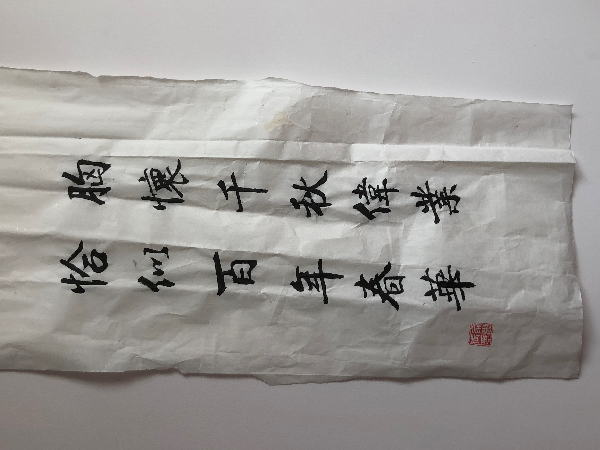 胸懷千秋偉業
恰似百年春華